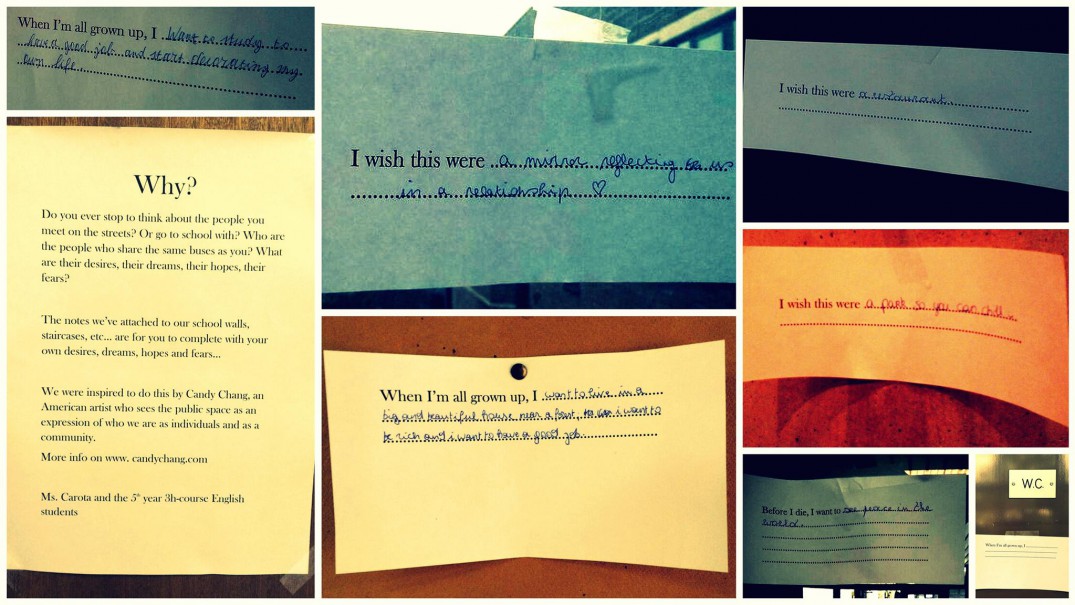 When I'm all grown up, I Want to study to
have a good job and start decorating my
own life.
Why?
Do you ever stop to think about the people you
meet on the streets? Or go to school with? Who are
the people who share the same buses as you? What
are their desires, their dreams, their hopes, their
fears?
The notes we've attached to our school walls,
staircases, etc... are for you to complete with your
own desires, dreams, hopes and fears...
We were inspired to do this by Candy Chang, an
American artist who sees the public space as an
expression of who we are as individuals and as a
community.
More info on www. candychang.com
Ms. Carota and the 5th year 3h-course English
students
I wish this were a mirror reflecting to us
in a relationship ♡
When I'm all grown up, I want to live in a
big and beautiful house near a i want to
be rich and i want to have a good job.
I wish this were a restaurant.
I wish this were a park so you can chill.
Before I die, I want to see peace in the
world.
W.C.
When I'm all grown up, I